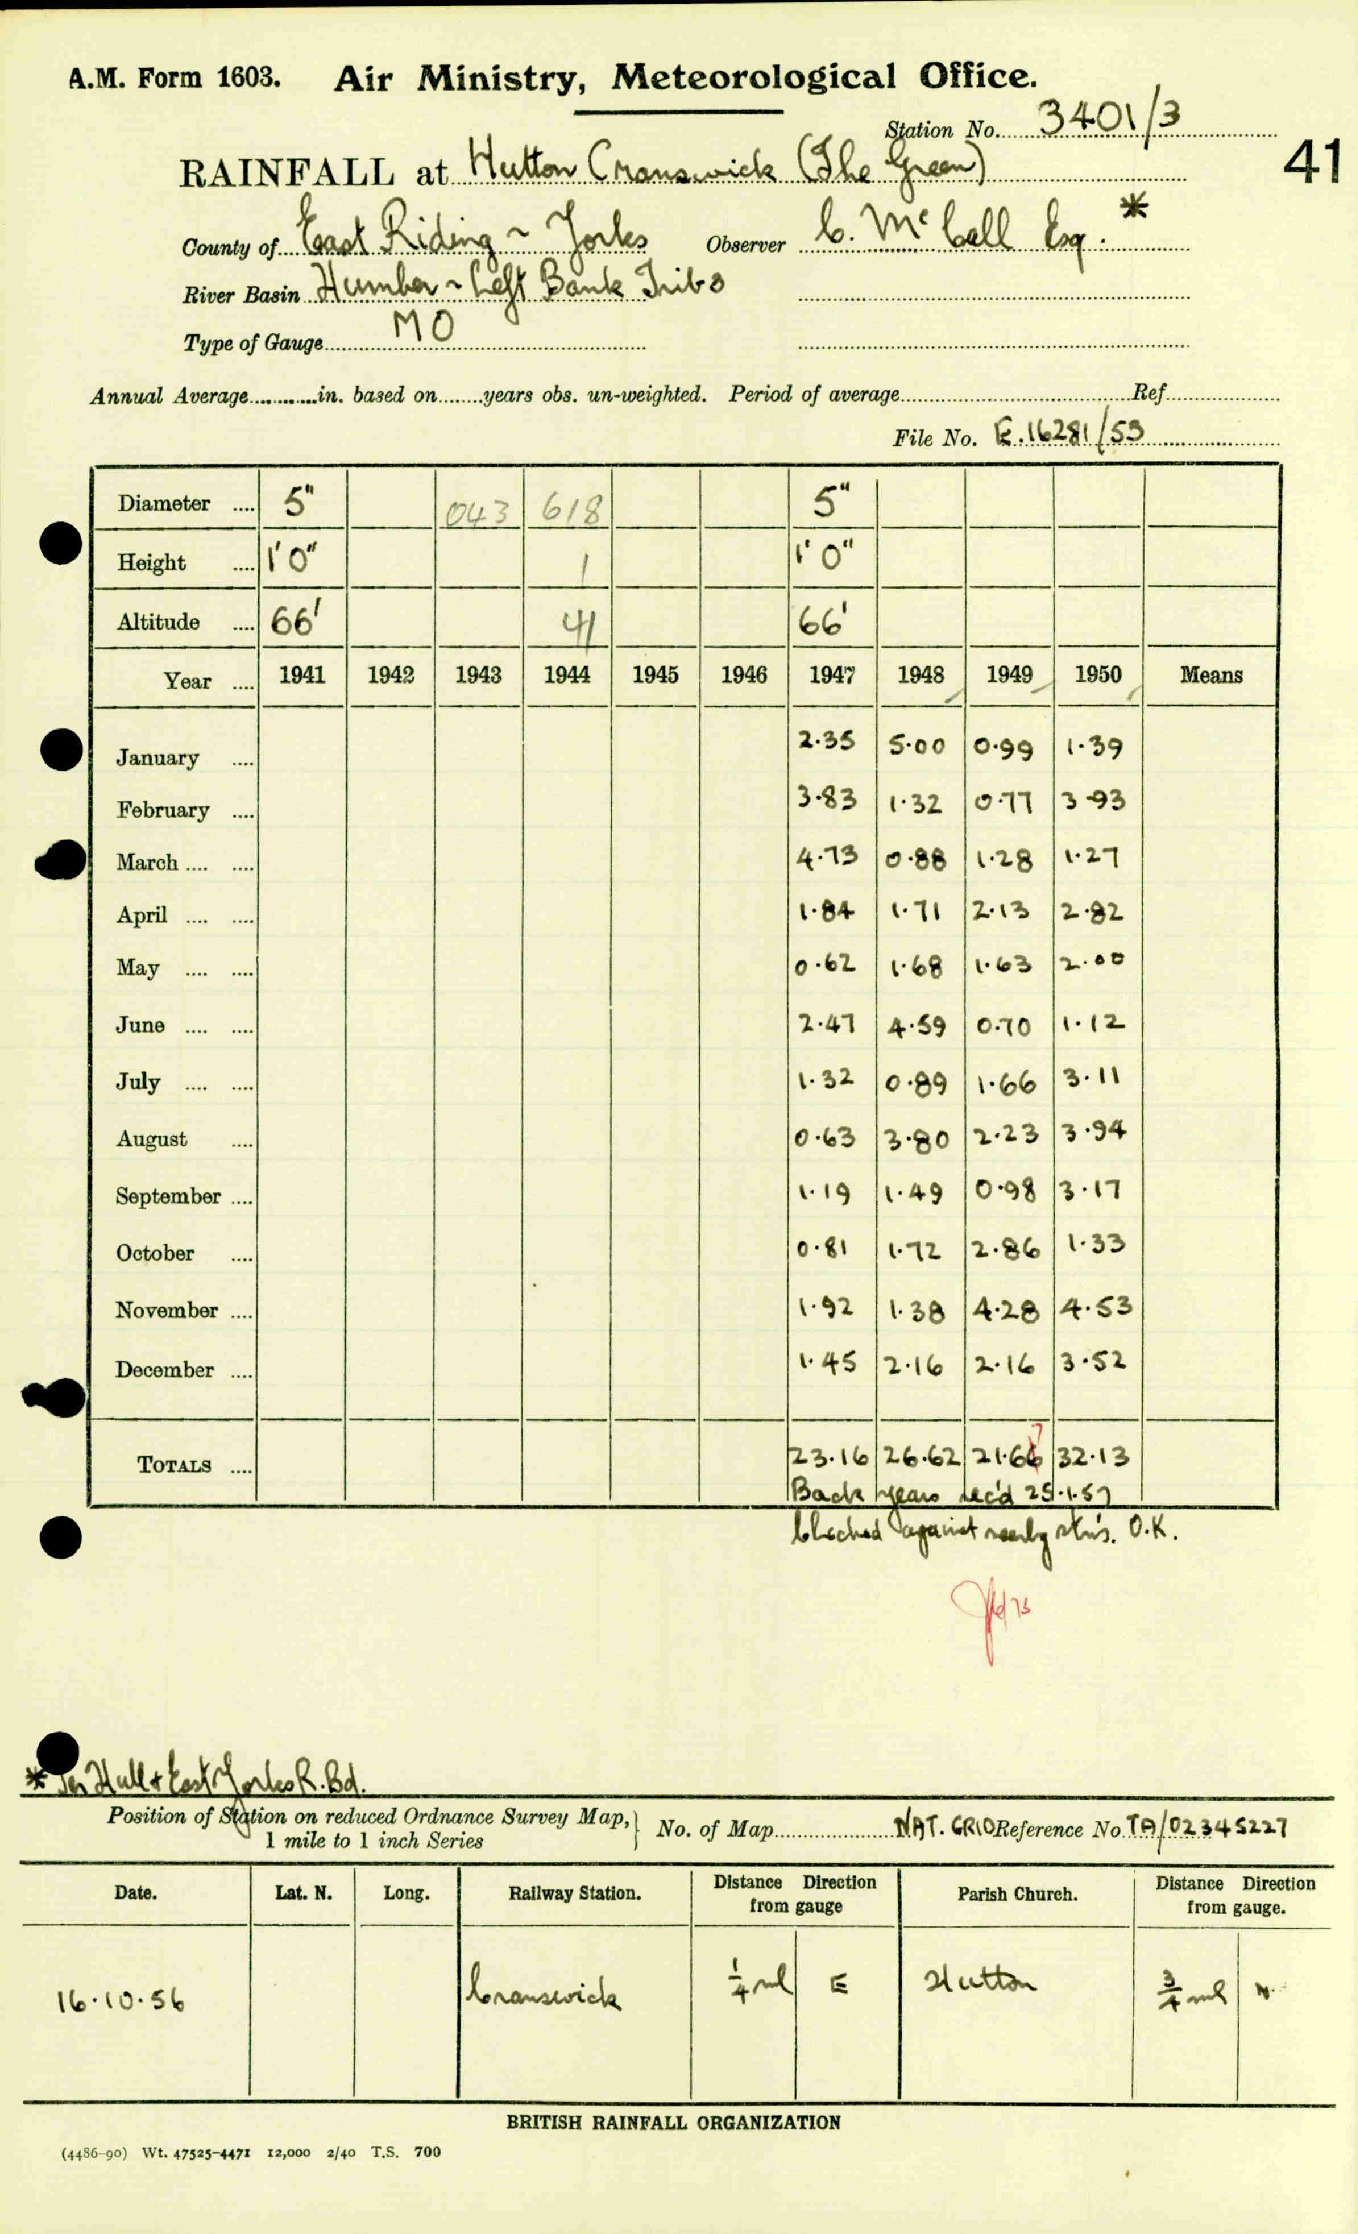 A.M. Form 1603. Air Ministry, Meteorological Office.
Station No. 3401/3
41
RAINFALL at Hutton Cranswick (The Green)
County of East Riding ~ Yorks Observer C. McCall Esq. *
River Basin Humber ~ Left Bank Tribs
Type of Gauge MO
Annual Average in. based on years obs. un-weighted. Period of average Ref
File No. E.16281/53
Diameter 5" 043 618 5"
Height 1'0" 1 1'0"
Altitude 66' 41 66'
Year 1941 1942 1943 1944 1945 1946 1947 1948 1949 1950 Means
January 2.35 5.00 0.99 1.39
February 3.83 1.32 0.77 3.93
March 4.73 0.88 1.28 1.27
April 1.84 1.71 2.13 2.82
May 0.62 1.68 1.63 2.00
June 2.47 4.59 0.70 1.12
July 1.32 0.89 1.66 3.11
August 0.63 3.80 2.23 3.94
September 1.19 1.49 0.98 3.17
October 0.81 1.72 2.86 1.33
November 1.92 1.38 4.28 4.53
December 1.45 2.16 2.16 3.52
7
TOTALS 23.16 26.62 21.66 32.13
Back years rec'd 25.1.57
Checked against nearby stn's. O.K.
* Hull + East Yorks R. Bd.
Position of Station on reduced Ordnance Survey Map, 1 mile to 1 inch Series } No. of Map NAT. GRID Reference No TA/02345227
Date. Lat. N. Long. Railway Station. Distance Direction from gauge Parish Church. Distance Direction from gauge.
16.10.56 Cranswick 1/4 ml E Hutton 3/4 ml N.
BRITISH RAINFALL ORGANIZATION
(4486-90) Wt. 47525-4471 12,000 2/40 T.S. 700